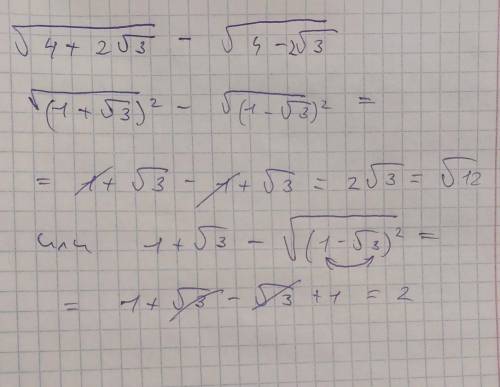 √(4 + 2√3) − √(4 − 2√3)
√(1 + √3)² − √(1 − √3)² =
= 1 + √3 − 1 + √3 = 2√3 = √12
или 1 + √3 − √(1 − √3)² =
= 1 + √3 − √3 + 1 = 2